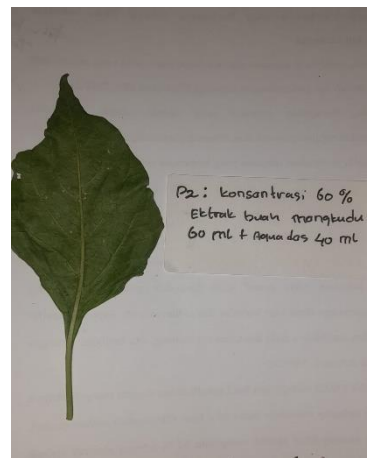 P2 : konsentrasi 60 %
Ektrak buah mengkudu
60 ml + Aquades 40 ml